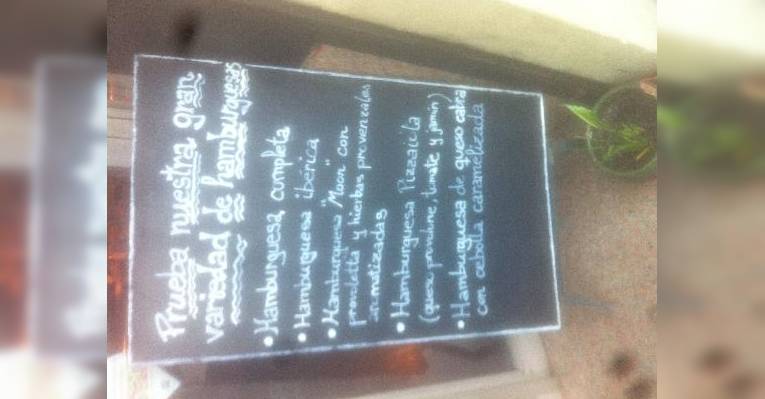 Prueba nuestra gran
variedad de hamburguesas
• Hamburguesa completa
• Hamburguesa iberica
• Hamburguesa "Moon" con
provoletta y hierbas provenzales
aromatizadas
• Hamburguesa Pizzaiola
(queso provolone, tomate y jamón)
• Hamburguesa de queso cabra
con cebolla caramelizada